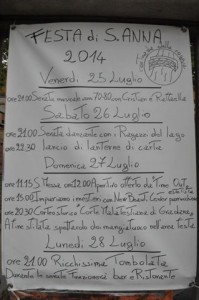 FESTA di S. ANNA
2014
Venerdì 25 Luglio
ore 21.00 Serata musicale 70-80 con Cristian e Raffaella
Sabato 26 Luglio
ore 21.00 Serata danzante con i Ragazzi del lago
ore 22.30 lancio di lanterne di carta
Domenica 27 Luglio
ore 11.15 S Messa ore 12.00 Aperitivo offerto da Time Out
ore 15.00 Impariamo i mestieri con New Beat Center
ore 20.30 Corte storica Corte Malatestiana di Gradara
A fine sfilata spettacolo dei mangiafuoco nell'area festa
Lunedì 28 Luglio
ore 21.00 Ricchissima Tombolata
Durante le serate Funzionerà bar e Ristorante